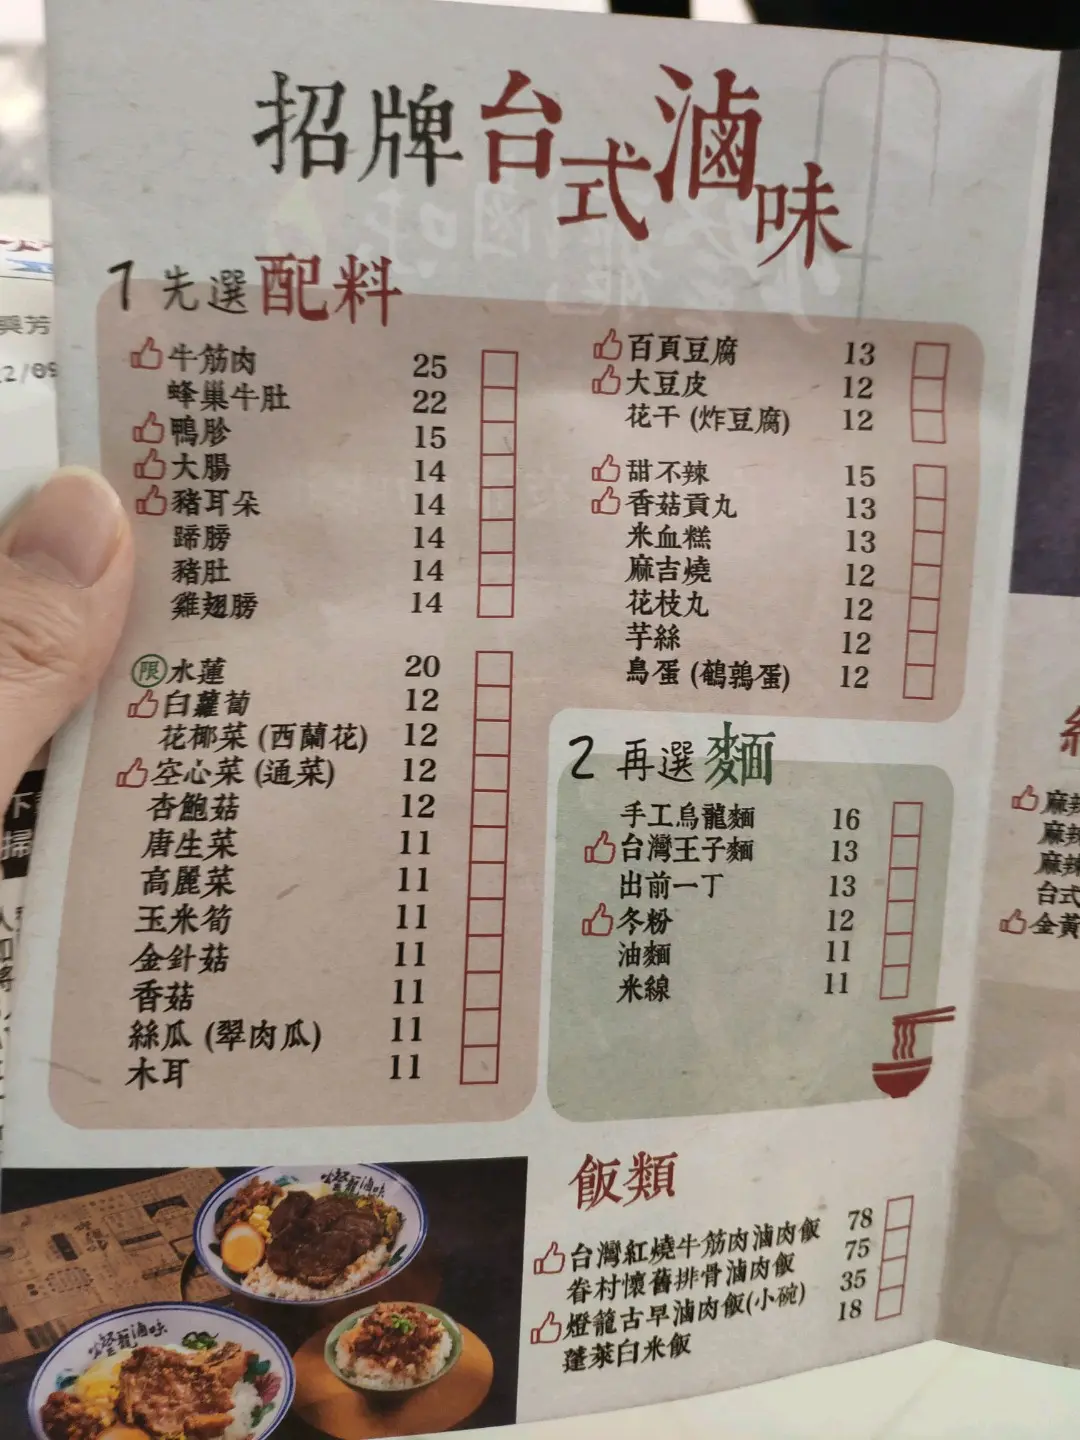 招牌台式滷味
1 先選配料
牛筋肉 25
蜂巢牛肚 22
鴨胗 15
大腸 14
豬耳朵 14
蹄膀 14
豬肚 14
雞翅膀 14
限 水蓮 20
白蘿蔔 12
花椰菜 (西蘭花) 12
空心菜 (通菜) 12
杏鮑菇 12
唐生菜 11
高麗菜 11
玉米筍 11
金針菇 11
香菇 11
絲瓜 (翠肉瓜) 11
木耳 11
百頁豆腐 13
大豆皮 12
花干 (炸豆腐) 12
甜不辣 15
香菇貢丸 13
米血糕 13
麻吉燒 12
花枝丸 12
芋絲 12
鳥蛋 (鵪鶉蛋) 12
2 再選麵
手工烏龍麵 16
台灣王子麵 13
出前一丁 13
冬粉 12
油麵 11
米線 11
飯類
台灣紅燒牛筋肉滷肉飯 78
眷村懷舊排骨滷肉飯 75
燈籠古早滷肉飯(小碗) 35
蓬萊白米飯 18
麻辣
麻辣
麻辣
台式
金黃